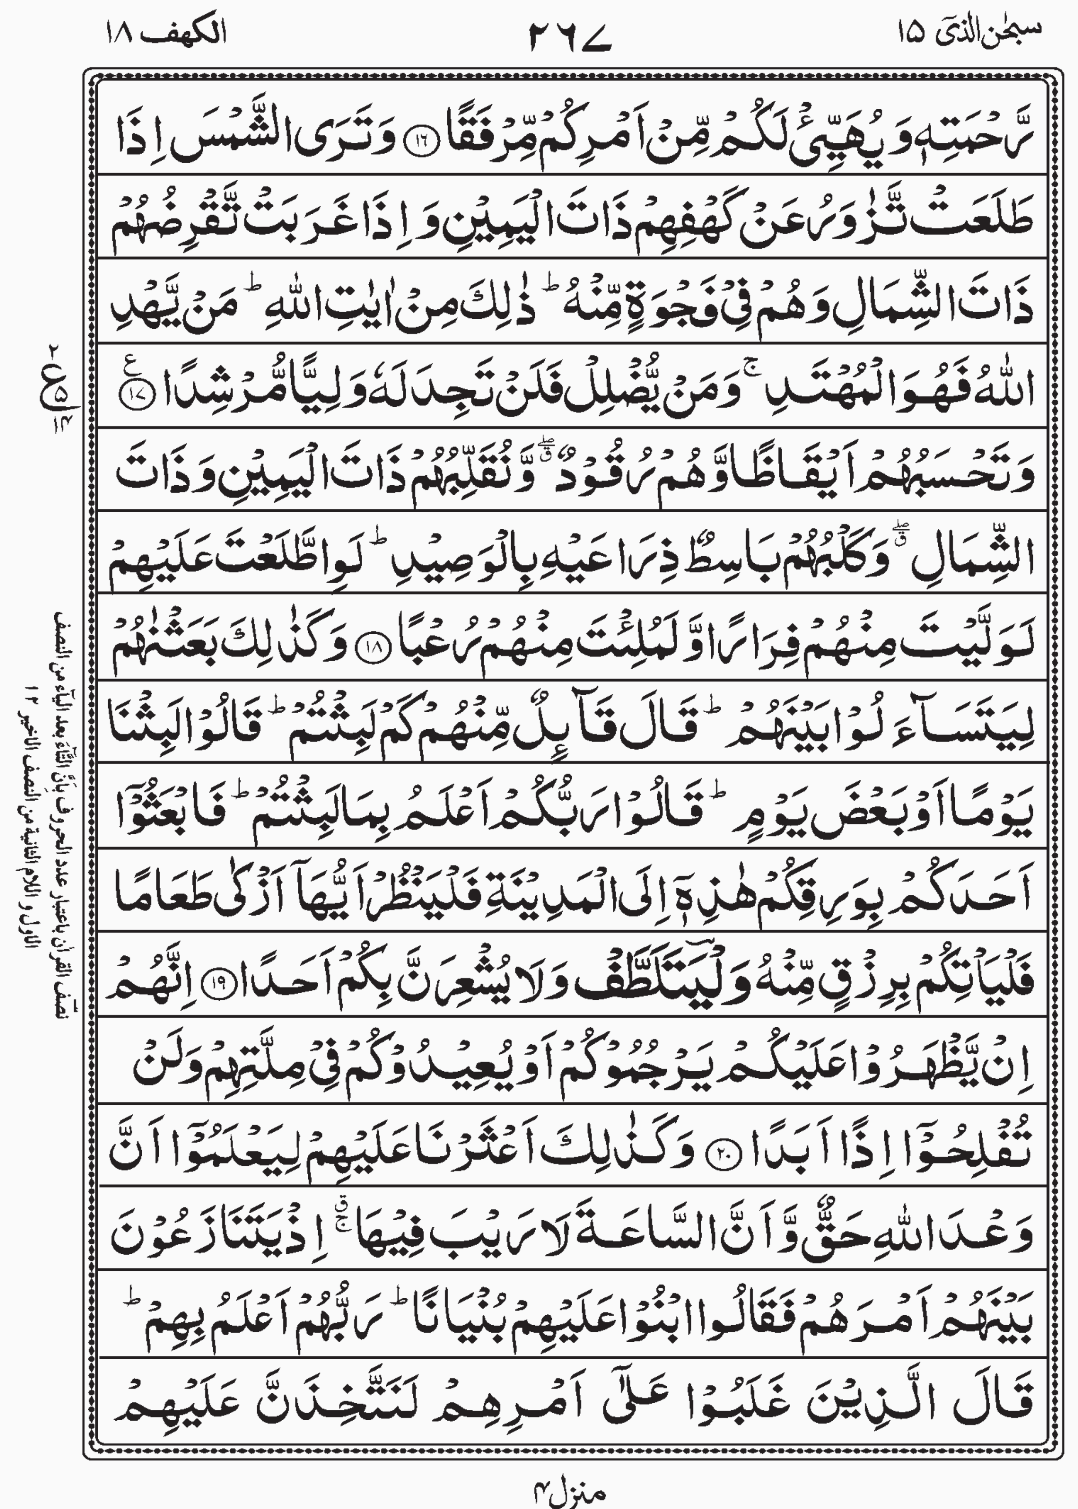 سبحٰن الذیۤ ۱۵
۲۶۷
الکهف ۱۸
رَّحْمَتِهٖ وَيُهَيِّئْ لَكُمْ مِّنْ اَمْرِكُمْ مِّرْفَقًا ﴿۱۶﴾ وَتَرَى الشَّمْسَ اِذَا
طَلَعَتْ تَّزٰوَرُ عَنْ كَهْفِهِمْ ذَاتَ الْيَمِيْنِ وَ اِذَا غَرَبَتْ تَّقْرِضُهُمْ
ذَاتَ الشِّمَالِ وَهُمْ فِيْ فَجْوَةٍ مِّنْهُ ؕ ذٰلِكَ مِنْ اٰيٰتِ اللّٰهِ ؕ مَنْ يَّهْدِ
اللّٰهُ فَهُوَ الْمُهْتَدِ ۚ وَمَنْ يُّضْلِلْ فَلَنْ تَجِدَ لَهٗ وَلِيًّا مُّرْشِدًا ﴿۱۷﴾ ع
وَتَحْسَبُهُمْ اَيْقَاظًا وَّهُمْ رُقُوْدٌ ۖق وَّنُقَلِّبُهُمْ ذَاتَ الْيَمِيْنِ وَذَاتَ
الشِّمَالِ ۖق وَكَلْبُهُمْ بَاسِطٌ ذِرَاعَيْهِ بِالْوَصِيْدِ ؕ لَوِ اطَّلَعْتَ عَلَيْهِمْ
لَوَلَّيْتَ مِنْهُمْ فِرَارًا وَّلَمُلِئْتَ مِنْهُمْ رُعْبًا ﴿۱۸﴾ وَكَذٰلِكَ بَعَثْنٰهُمْ
لِيَتَسَآءَلُوْا بَيْنَهُمْ ؕ قَالَ قَآئِلٌ مِّنْهُمْ كَمْ لَبِثْتُمْ ؕ قَالُوْا لَبِثْنَا
يَوْمًا اَوْ بَعْضَ يَوْمٍ ؕ قَالُوْا رَبُّكُمْ اَعْلَمُ بِمَا لَبِثْتُمْ ؕ فَابْعَثُوْۤا
اَحَدَكُمْ بِوَرِقِكُمْ هٰذِهٖۤ اِلَى الْمَدِيْنَةِ فَلْيَنْظُرْ اَيُّهَاۤ اَزْكٰى طَعَامًا
فَلْيَاْتِكُمْ بِرِزْقٍ مِّنْهُ وَلْيَتَلَطَّفْ وَلَا يُشْعِرَنَّ بِكُمْ اَحَدًا ﴿۱۹﴾ اِنَّهُمْ
اِنْ يَّظْهَرُوْا عَلَيْكُمْ يَرْجُمُوْكُمْ اَوْ يُعِيْدُوْكُمْ فِيْ مِلَّتِهِمْ وَلَنْ
تُفْلِحُوْۤا اِذًا اَبَدًا ﴿۲۰﴾ وَكَذٰلِكَ اَعْثَرْنَا عَلَيْهِمْ لِيَعْلَمُوْۤا اَنَّ
وَعْدَ اللّٰهِ حَقٌّ وَّاَنَّ السَّاعَةَ لَا رَيْبَ فِيْهَا ۚق اِذْ يَتَنَازَعُوْنَ
بَيْنَهُمْ اَمْرَهُمْ فَقَالُوا ابْنُوْا عَلَيْهِمْ بُنْيَانًا ؕ رَبُّهُمْ اَعْلَمُ بِهِمْ ؕ
قَالَ الَّذِيْنَ غَلَبُوْا عَلٰۤى اَمْرِهِمْ لَنَتَّخِذَنَّ عَلَيْهِمْ
۲
ع
۵
نصف القراٰن باعتبار عدد الحروف بانّ التّاۤء بعد الیاۤء من النصف
الاول و اللام الثانية من النصف الاخير ۱۲
منزل ۴